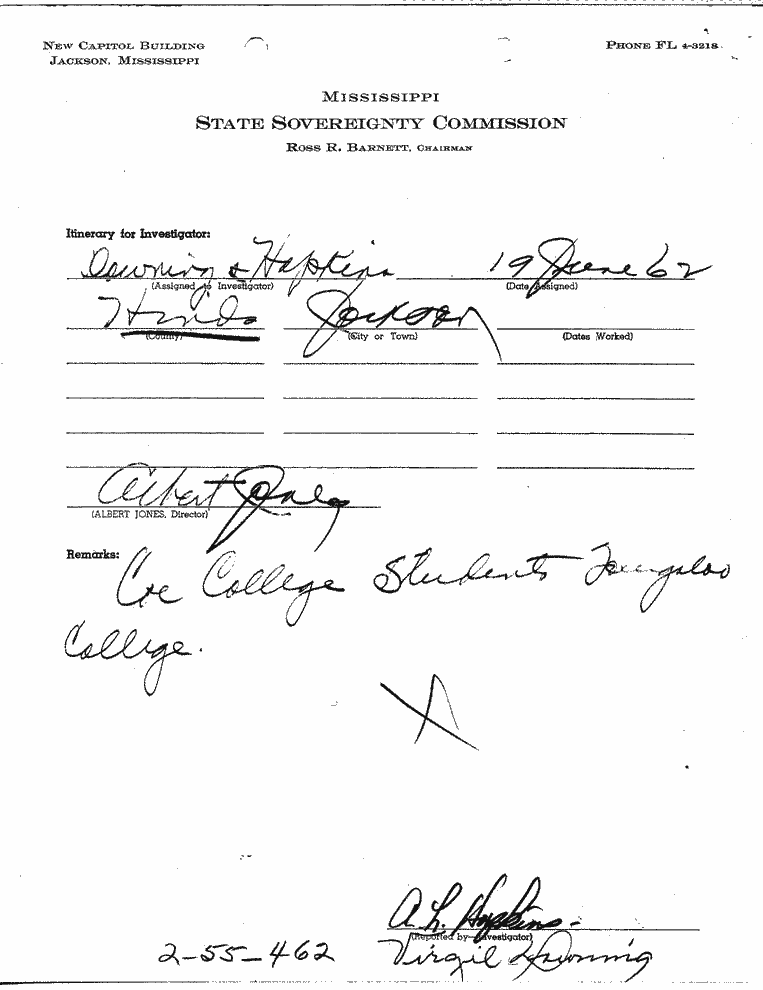 NEW CAPITOL BUILDING
JACKSON, MISSISSIPPI
PHONE FL 4-3218
MISSISSIPPI
STATE SOVEREIGNTY COMMISSION
ROSS R. BARNETT, CHAIRMAN
Itinerary for Investigator:
Downing & Hopkins 19 June 62
(Assigned to Investigator) (Date Assigned)
Hinds Jackson
(County) (City or Town) (Dates Worked)
Albert Jones
(ALBERT JONES, Director)
Remarks:
Coe College Students Tougaloo
College.
A. L. Hopkins
(Reported by Investigator)
2-55-462 Virgil Downing